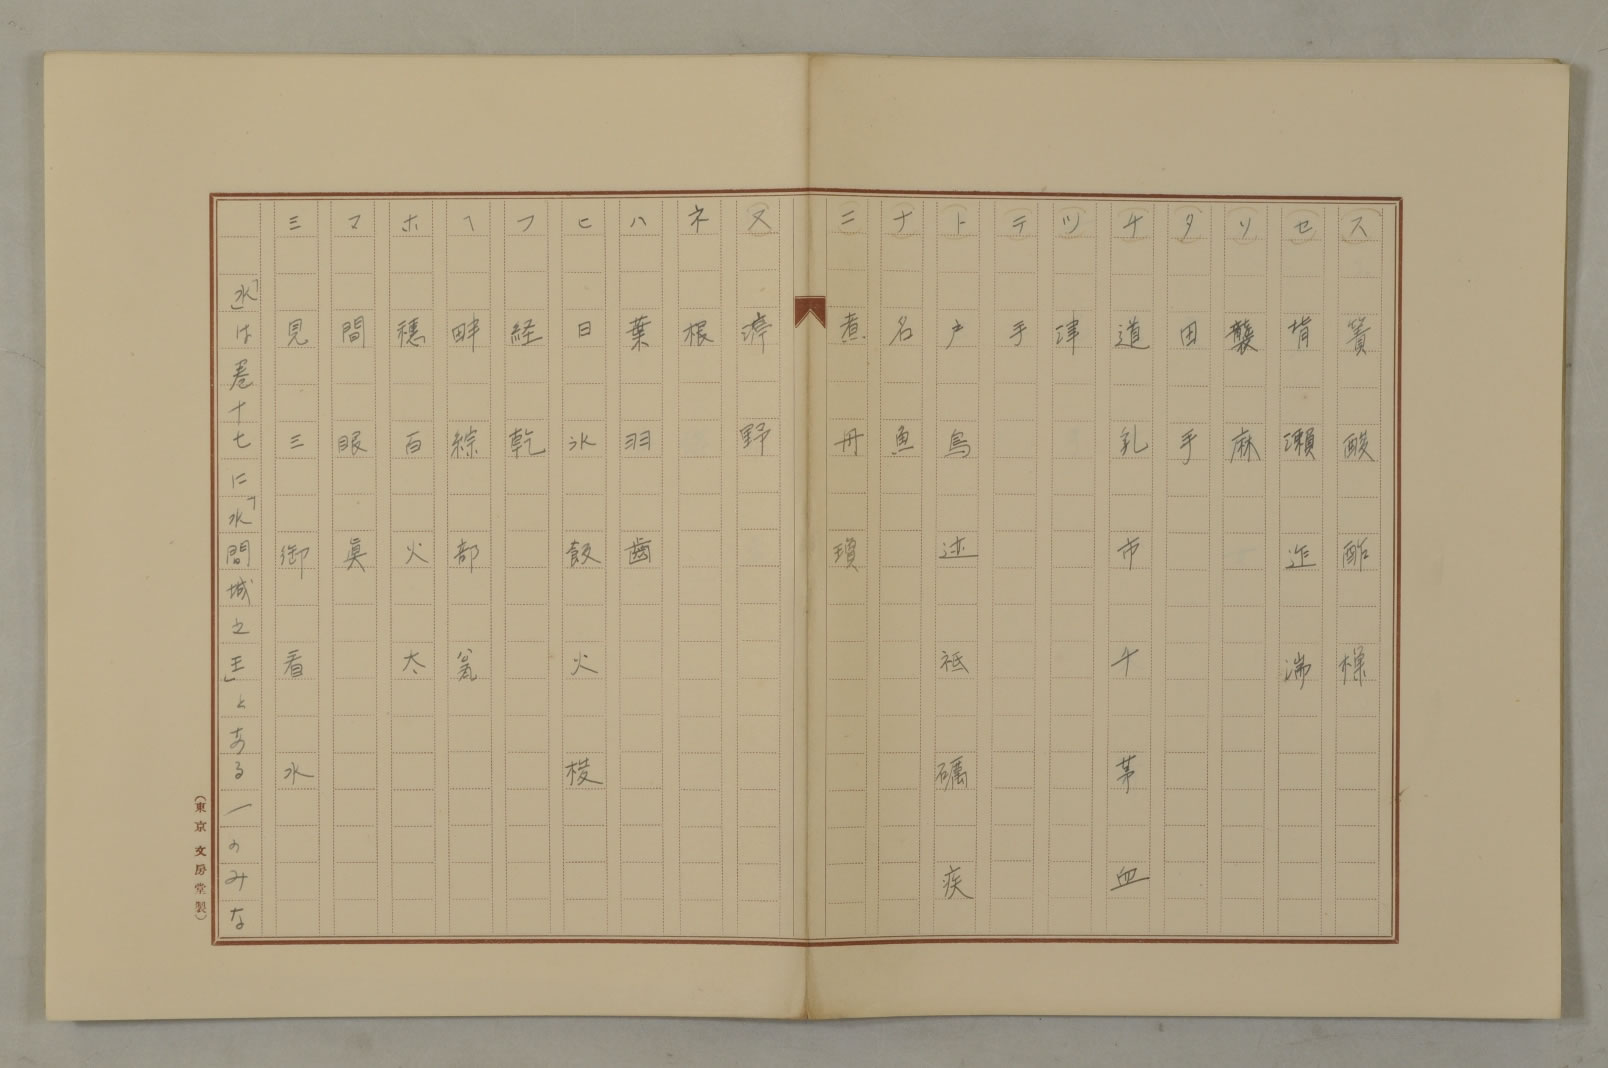 ス 簀 酸 酢 樔
セ 背 瀬 迮 湍
ソ 襲 麻
タ 田 手
チ 道 乳 市 千 茅 血
ツ 津
テ 手
ト 戸 鳥 迹 祗 礪 疾
ナ 名 魚
ニ 煮 丹 瓊
ヌ 渟 野
ネ 根
ハ 葉 羽 歯
ヒ 日 氷 飯 火 梭
フ 経 乾
ヘ 畔 綜 部 瓮
ホ 穗 百 火 太
マ 間 眼 眞
ミ 見 三 御 看 水
「水」は巻十七に「水間城之王」とある一のみな
(東京 文房堂製)